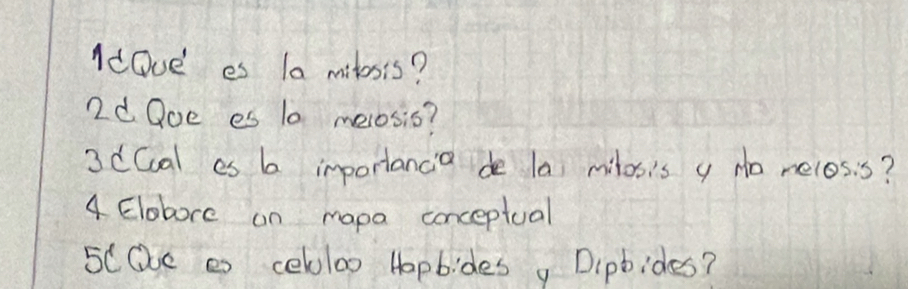 1¿Qué es la mitosis?
2¿Que es la meiosis?
3¿Cual es la importancia de la mitosis y la meiosis?
4 Elabore un mapa conceptual
5¿Que es celulas Haploides y Diploides?